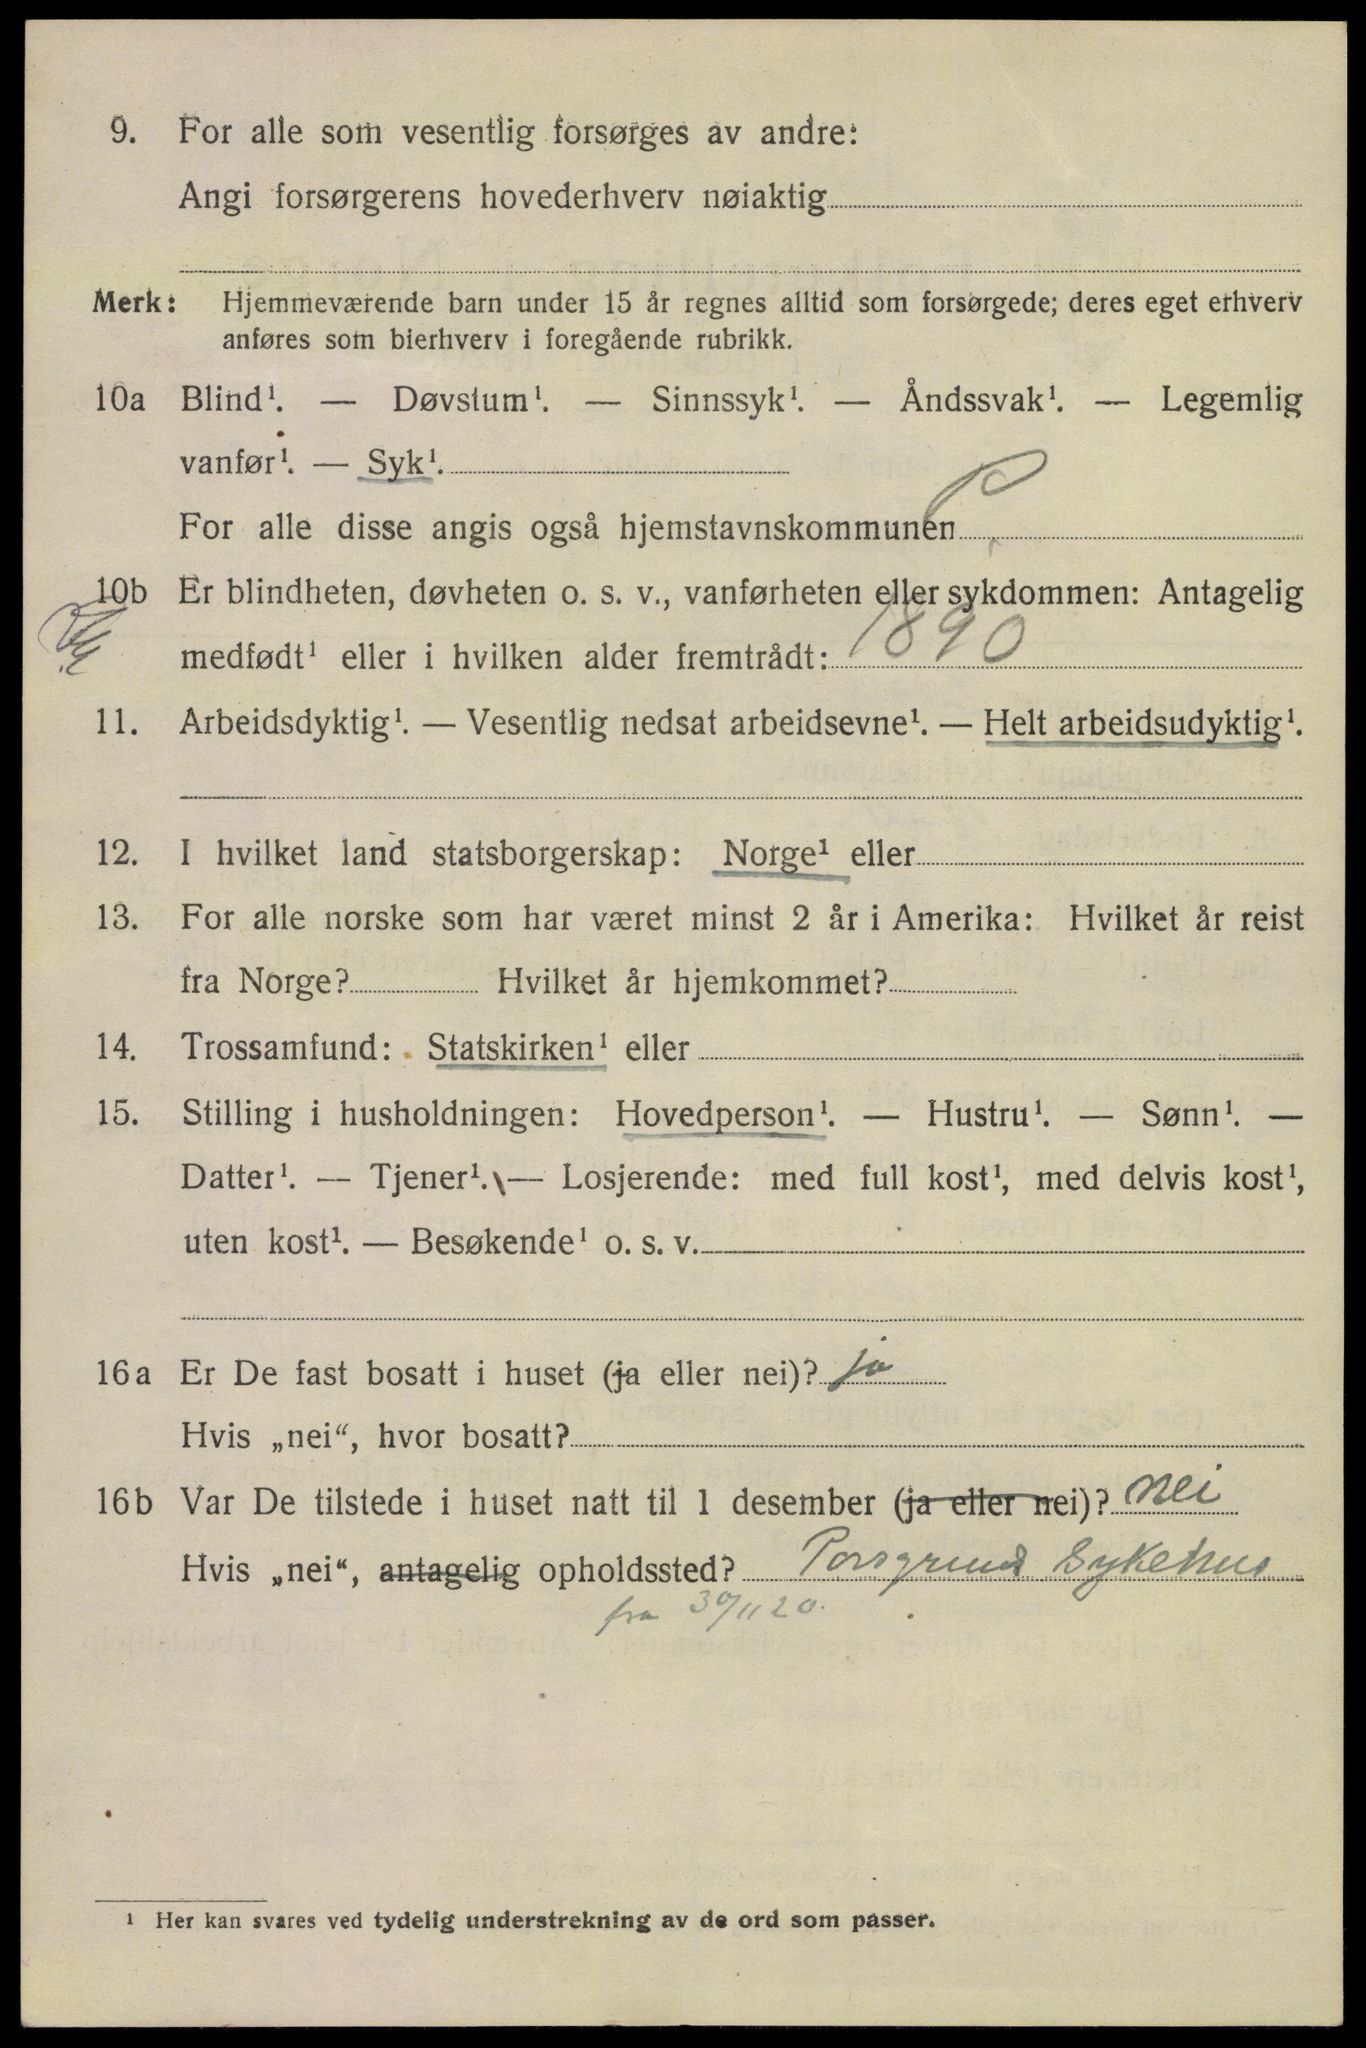 9. For alle som vesentlig forsørges av andre:
Angi forsørgerens hovederhverv nøiaktig
Merk: Hjemmeværende barn under 15 år regnes alltid som forsørgede; deres eget erhverv
anføres som bierhverv i foregående rubrikk.
10a Blind¹. — Døvstum¹. — Sinnssyk¹. — Åndssvak¹. — Legemlig
vanfør¹. — Syk¹.
For alle disse angis også hjemstavnskommunen P
10b Er blindheten, døvheten o. s. v., vanførheten eller sykdommen: Antagelig
medfødt¹ eller i hvilken alder fremtrådt: 1890
11. Arbeidsdyktig¹. — Vesentlig nedsat arbeidsevne¹. — Helt arbeidsudyktig¹.
12. I hvilket land statsborgerskap: Norge¹ eller
13. For alle norske som har været minst 2 år i Amerika: Hvilket år reist
fra Norge? Hvilket år hjemkommet?
14. Trossamfund: Statskirken¹ eller
15. Stilling i husholdningen: Hovedperson¹. — Hustru¹. — Sønn¹. —
Datter¹. — Tjener¹. — Losjerende: med full kost¹, med delvis kost¹,
uten kost¹. — Besøkende¹ o. s. v.
16a Er De fast bosatt i huset (ja eller nei)? ja
Hvis „nei“, hvor bosatt?
16b Var De tilstede i huset natt til 1 desember (ja eller nei)? nei
Hvis „nei“, antagelig opholdssted? Porsgrund Sykehus
fra 30/11 20.
¹ Her kan svares ved tydelig understrekning av de ord som passer.